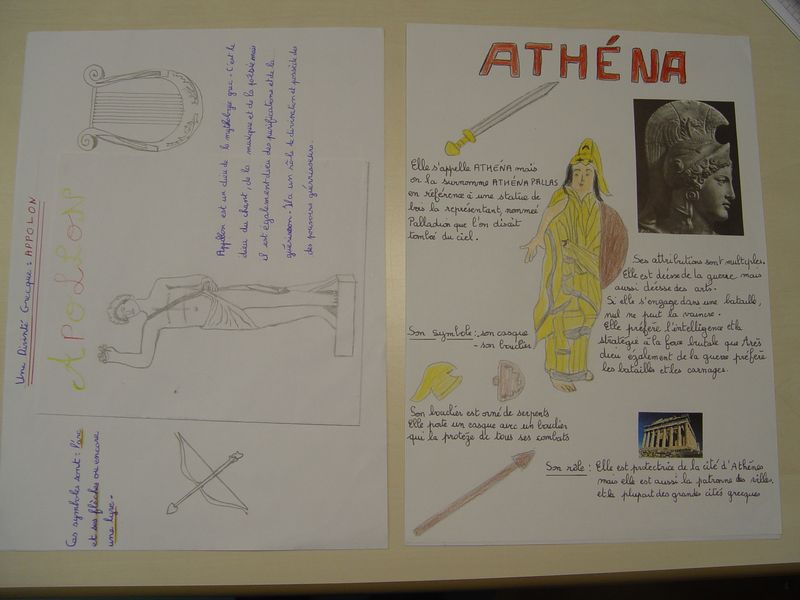 Une Divinité Grecque : APPOLON
APOLLON
Appollon est un dieu de la mythologie grec. C'est le
dieu du chant, de la musique et de la poésie mais
il est également dieu des purifications et de la
guérison. Il a un rôle de divination et possède
des pouvoirs guérisseurs.
Ces symboles sont : l'arc
et ses flèches ou encore
une lyre.
ATHÉNA
Elle s'appelle ATHÉNA mais
on la surnomme ATHÉNA PALLAS
en référence à une statue de
bois la représentant, nommée
Palladion que l'on disait
tombé du ciel.
Ses attributions sont multiples.
Elle est déesse de la guerre mais
aussi déesse des arts.
Si elle s'engage dans une bataille,
nul ne peut la vaincre.
Elle préfère l'intelligence et la
stratégie à la force brutale que Arès
dieu également de la guerre préfère
les batailles et les carnages.
Son symbole : son casque
- son bouclier
Son bouclier est orné de serpents
Elle porte un casque avec un bouclier
qui la protège de tous ses combats
Son rôle : Elle est protectrice de la cité d'Athènes
mais elle est aussi la patronne des villes.
et la plupart des grandes cités grecques